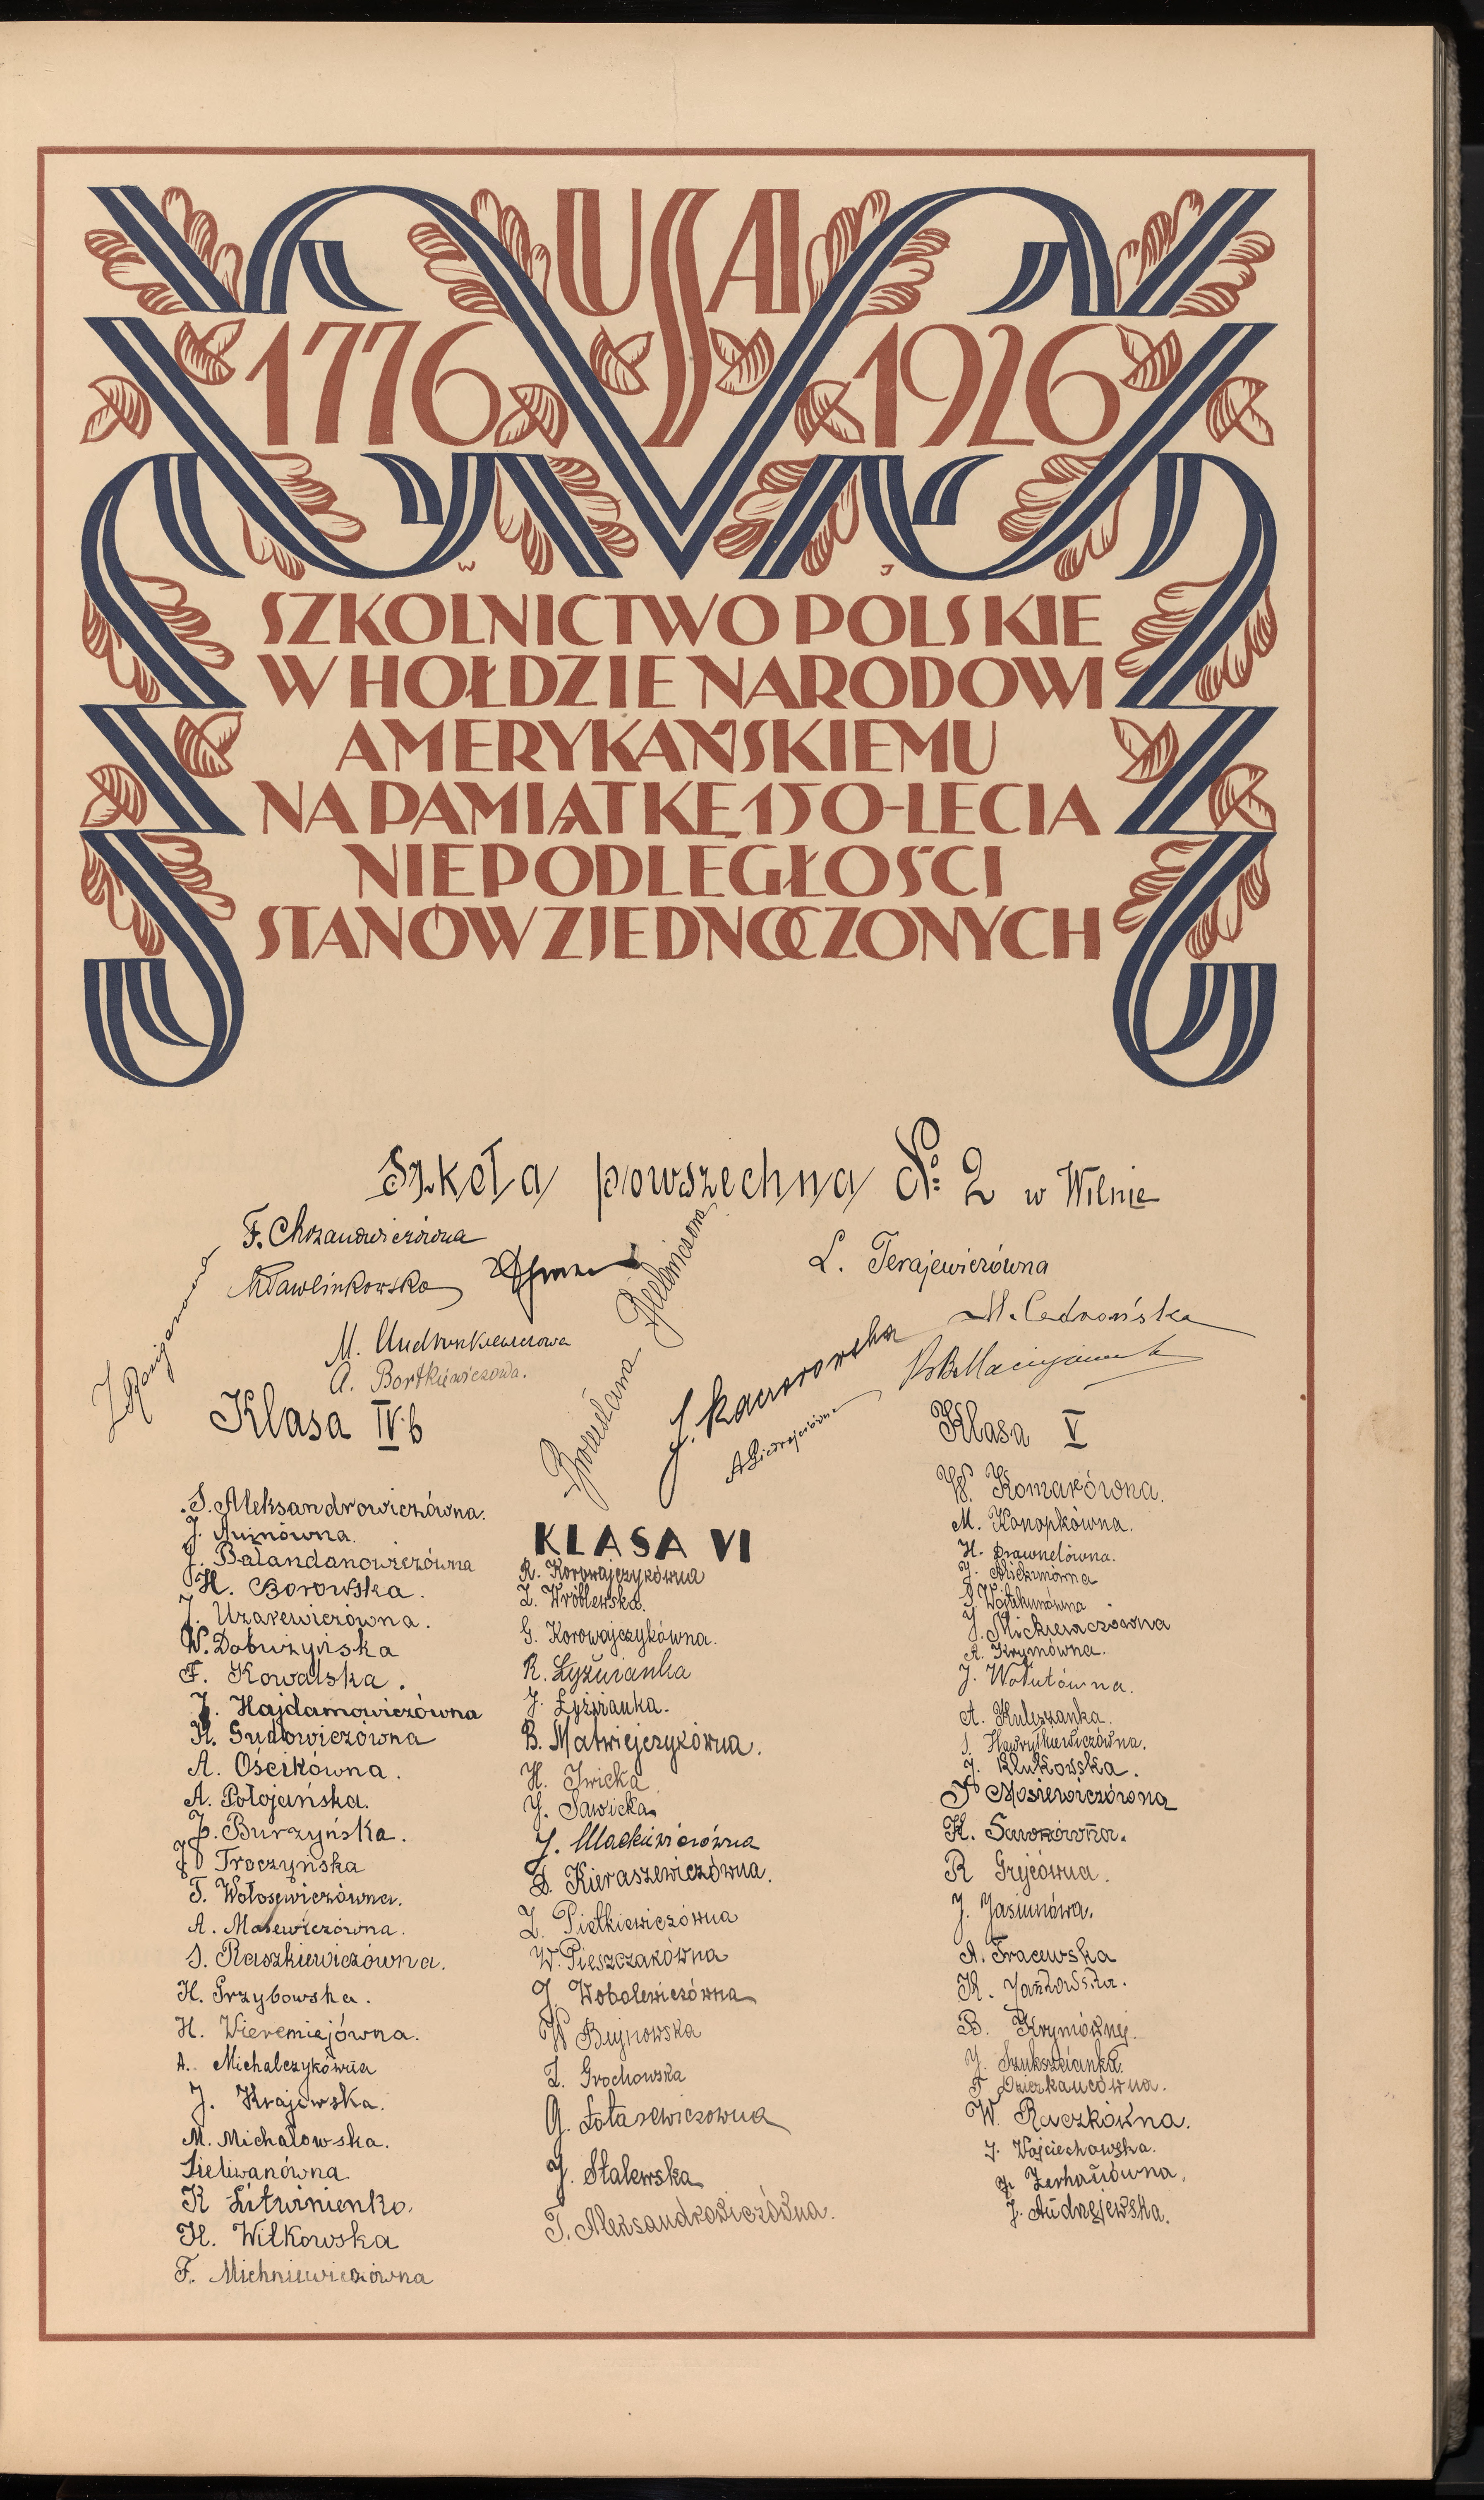 USA
1776 1926
W J
SZKOLNICTWO POLSKIE
W HOŁDZIE NARODOWI
AMERYKAŃSKIEMU
NA PAMIĄTKĘ 150-LECIA
NIEPODLEGŁOŚCI
STANÓW ZJEDNOCZONYCH
Szkoła powszechna № 2 w Wilnie
F. Chrzanowiczówna
L. Terajewiczówna
M. Cedrońska
A. Bortkiewiczowa.
Bronisława
J. Kaczorowska
Klasa IV b
S. Aleksandrowiczówna.
J.
J. Bałandanowiczówna
H. Borowska.
J. Uzarewiczówna.
W. Dobużyńska
F. Kowalska.
J. Hajdamowiczówna
H. Sudowiczówna
A. Ościkówna.
A. Połojańska.
J. Burzyńska.
J. Troczyńska
T. Wołosewiczówna.
A. Masewiczówna.
S. Raszkiewiczówna.
H. Grzybowska.
H. Wieremiejówna.
A. Michalczykówna
J. Krajewska.
M. Michałowska.
Sieliwanówna
K Litwinienko.
H. Wilkowska
F. Michniewiczówna
KLASA VI
R. Korowajczykówna
Z. Wróblewska.
G. Korowajczykówna.
R. Łyżwianka
J. Łyżwianka.
B. Matwiejczykówna.
H. Iwicka
J. Sawicka
J. Mackiewiczówna
D. Kieraszewiczówna.
Z. Pietkiewiczówna
W. Pieszczakówna
J. Wobolewiczówna
W Bujnowska
Z. Grochowska
G. Łotasewiczowna
J. Stalewska
T. Aleksandrowiczówna.
Klasa V
W. Komarówna.
M. Konopkówna.
H. Drawnelówna.
J.
S. Wojtkunówna
J. Mickiewiczówna
A. Krymówna.
J. Wołutówna.
A. Kuleszanka.
J. Hawryłkiewiczówna.
J. Klukowska.
J Mosiewiczówna
K. Sawrówna.
R Grejćówna.
J. Jasiunówa.
A. Tracewska
K. Jankowska.
B. Krymównej.
J. Szuksztianka.
T Dzierkacówna.
W. Raczkówna.
J. Wojciechowska.
J. Żerhanówna.
J. Andrzejewska.